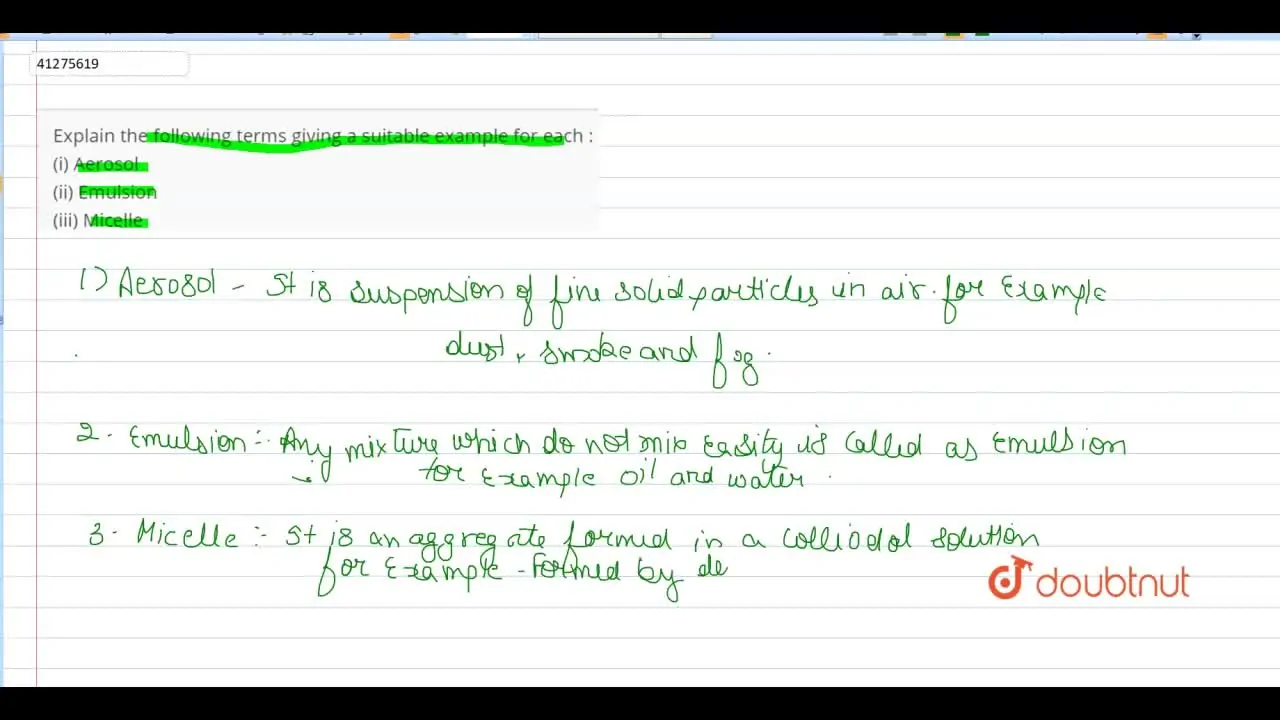 41275619
Explain the following terms giving a suitable example for each :
(i) Aerosol
(ii) Emulsion
(iii) Micelle
1) Aerosol - It is suspension of fine solid particles in air. for Example
dust, smoke and fog.
2. Emulsion :- Any mixture which do not mix easity is called as Emulsion
for Example oil and water.
3. Micelle :- It is an aggregate formed in a colliodal solution
for Example - Formed by de
doubtnut